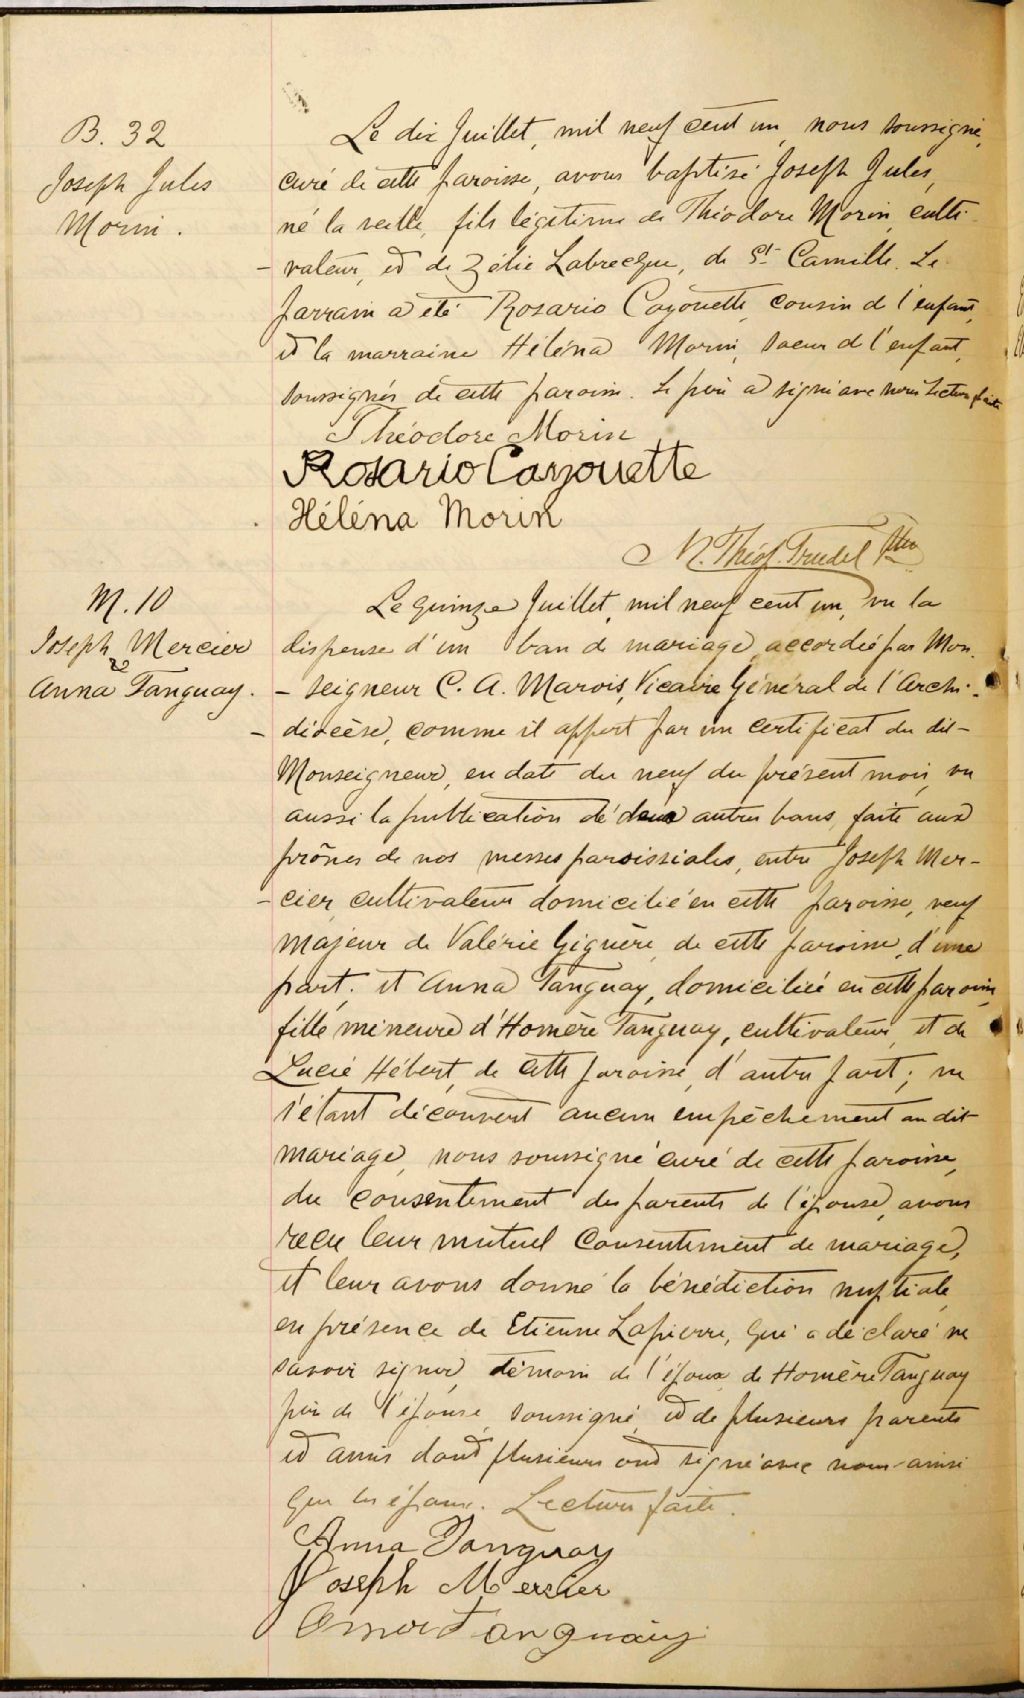 B. 32
Joseph Jules
Morin.
Le dix Juillet, mil neuf cent un, nous soussigné,
curé de cette paroisse, avons baptisé Joseph Jules,
né la veille, fils légitime de Théodore Morin, culti-
-vateur, et de Zélie Labrecque, de St Camille. Le
parrain a été Rosario Cayouette, cousin de l'enfant,
et la marraine Héléna Morin, soeur de l'enfant,
soussignés de cette paroisse. Le père a signé avec nous. Lecture faite
Théodore Morin
Rosario Cayouette
Héléna Morin
N. Théop. Trudel Ptre
M. 10
Joseph Mercier
&
Anna Tanguay.
Le quinze Juillet, mil neuf cent un, vu la
dispense d'un ban de mariage accordée par Mon-
-seigneur C. A. Marois, Vicaire Général de l'Archi-
-diocèse, comme il appert par un certificat du dit-
Monseigneur, en date du neuf du présent mois, vu
aussi la publication de deux autres bans, faite aux
prônes de nos messes paroissiales, entre Joseph Mer-
-cier, cultivateur domicilié en cette paroisse, veuf
majeur de Valérie Giguère, de cette paroisse, d'une
part; et Anna Tanguay, domiciliée en cette paroisse,
fille mineure d'Homère Tanguay, cultivateur, et de
Lucie Hébert, de cette paroisse, d'autre part; ne
s'étant découvert aucun empêchement au dit
mariage, nous soussigné curé de cette paroisse,
du consentement des parents de l'épouse, avons
reçu leur mutuel consentement de mariage,
et leur avons donné la bénédiction nuptiale,
en présence de Etienne Lapierre, qui a déclaré ne
savoir signer, témoin de l'époux, de Homère Tanguay
père de l'épouse, soussigné, et de plusieurs parents
et amis dont plusieurs ont signé avec nous ainsi
que les époux. Lecture faite.
Anna Tanguay
Joseph Mercier
Omer Tanguay